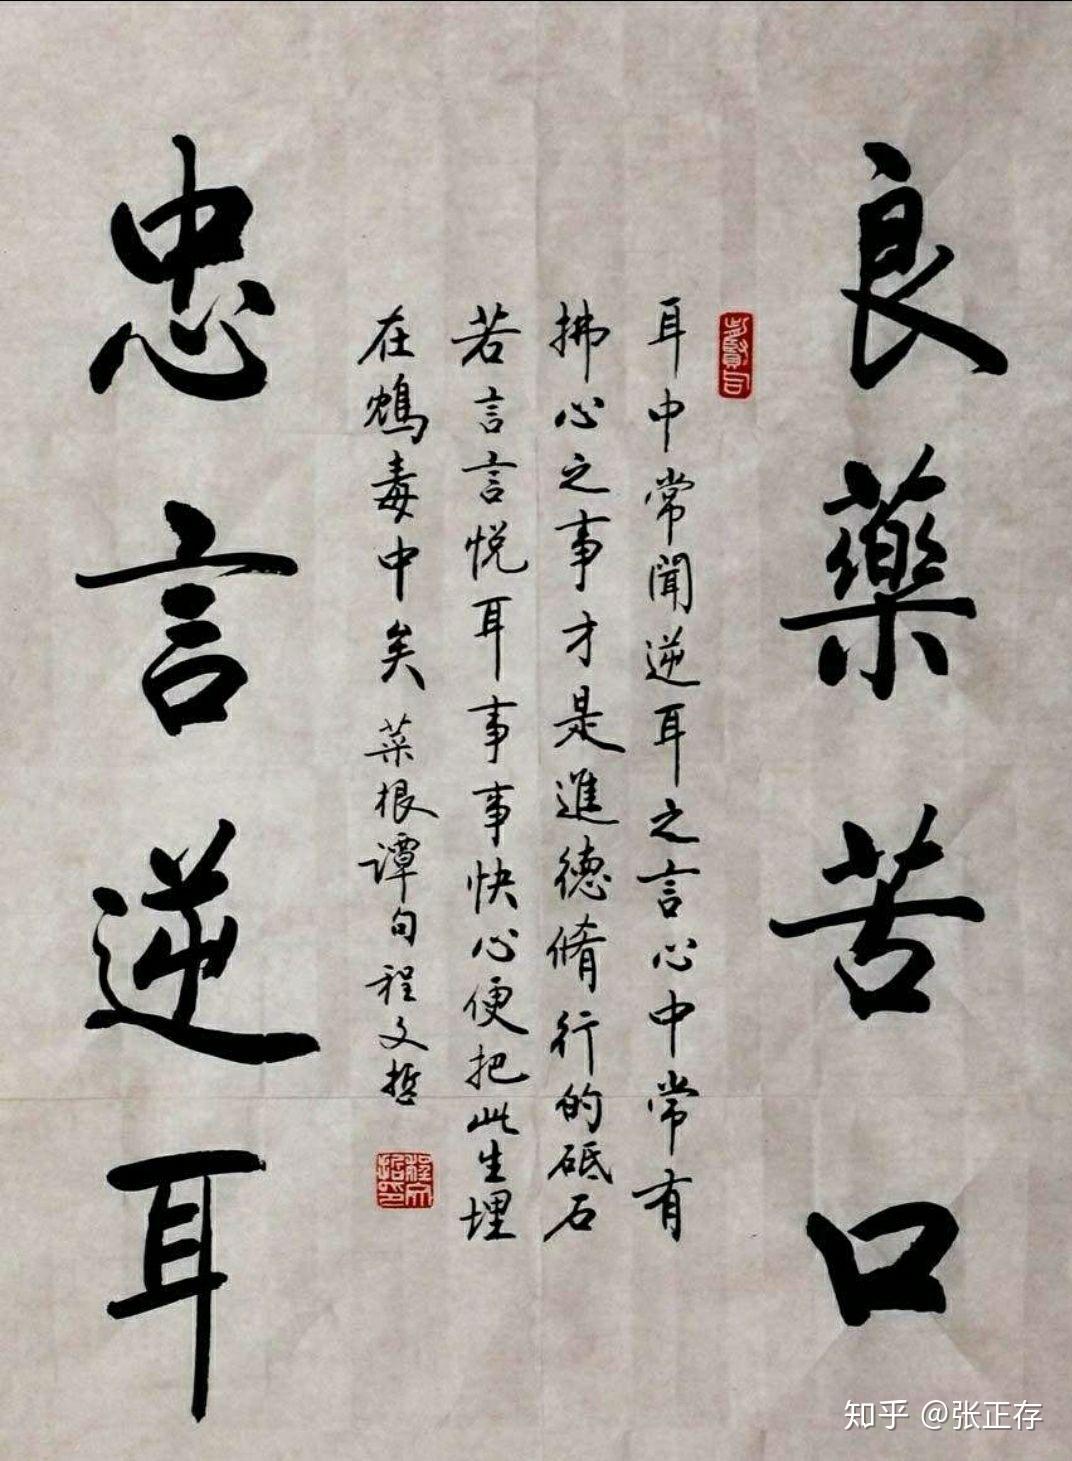 良藥苦口
耳中常聞逆耳之言心中常有
拂心之事才是進德脩行的砥石
若言言悦耳事事快心便把此生埋
在鴆毒中矣 菜根譚句 程文哲
忠言逆耳
知乎 @张正存